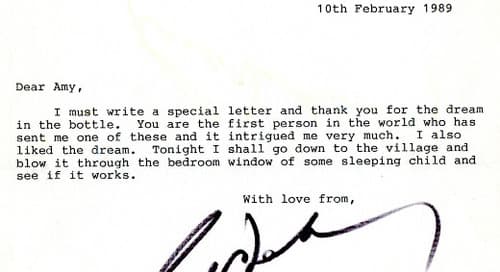 10th February 1989
Dear Amy,
I must write a special letter and thank you for the dream
in the bottle. You are the first person in the world who has
sent me one of these and it intrigued me very much. I also
liked the dream. Tonight I shall go down to the village and
blow it through the bedroom window of some sleeping child and
see if it works.
With love from,